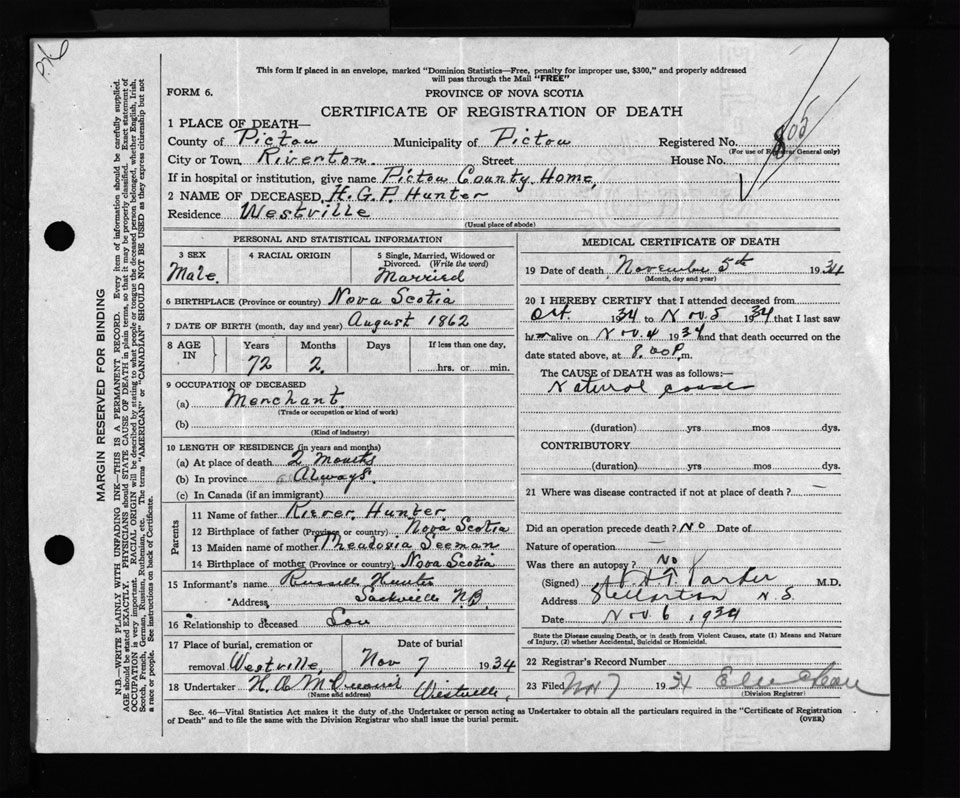 P.N6
This form if placed in an envelope, marked "Dominion Statistics—Free, penalty for improper use, $300," and properly addressed
will pass through the Mail "FREE"
FORM 6.
PROVINCE OF NOVA SCOTIA
CERTIFICATE OF REGISTRATION OF DEATH
1 PLACE OF DEATH—
County of Pictou Municipality of Pictou Registered No. 805
(For use of Registrar General only)
City or Town, Riverton. Street House No.
If in hospital or institution, give name Pictou County Home,
2 NAME OF DECEASED H. G. P. Hunter
Residence Westville
(Usual place of abode)
PERSONAL AND STATISTICAL INFORMATION
3 SEX 4 RACIAL ORIGIN 5 Single, Married, Widowed or Divorced. (Write the word)
Male. Married
6 BIRTHPLACE (Province or country) Nova Scotia
7 DATE OF BIRTH (month, day and year) August 1862
8 AGE IN Years Months Days If less than one day,
72 2. hrs. or min.
9 OCCUPATION OF DECEASED
(a) Merchant.
(Trade or occupation or kind of work)
(b)
(Kind of industry)
10 LENGTH OF RESIDENCE (in years and months)
(a) At place of death 2 Months
(b) In province Always.
(c) In Canada (if an immigrant)
Parents
11 Name of father Hunter
12 Birthplace of father (Province or country) Nova Scotia
13 Maiden name of mother Theadosia Seeman
14 Birthplace of mother (Province or country) Nova Scotia
15 Informant's name Russell Hunter
Address, Sackville N.B.
16 Relationship to deceased Son
17 Place of burial, cremation or removal Westville, Date of burial Nov 7 1934
18 Undertaker H. A. Westville,
(Name and address)
MEDICAL CERTIFICATE OF DEATH
19 Date of death November 5th 1934
(Month, day and year)
20 I HEREBY CERTIFY that I attended deceased from
Oct. 1934 to Nov. 5 1934 that I last saw
him alive on Nov. 4 1934 and that death occurred on the
date stated above, at 8.00 P. m.
The CAUSE of DEATH was as follows:—
Natural cause
(duration) yrs mos dys.
CONTRIBUTORY
(duration) yrs mos dys.
21 Where was disease contracted if not at place of death? —
Did an operation precede death? No Date of
Nature of operation —
Was there an autopsy? No
(Signed) Parker M.D.
Address Stellarton N.S.
Date Nov. 6 1934
State the Disease causing Death, or in death from Violent Causes, state (1) Means and Nature
of Injury, (2) whether Accidental, Suicidal or Homicidal.
22 Registrar's Record Number
23 Filed Nov 7 1934
(Division Registrar)
Sec. 46—Vital Statistics Act makes it the duty of the Undertaker or person acting as Undertaker to obtain all the particulars required in the "Certificate of Registration
of Death" and to file the same with the Division Registrar who shall issue the burial permit. (OVER)
MARGIN RESERVED FOR BINDING
N.B.—WRITE PLAINLY WITH UNFADING INK—THIS IS A PERMANENT RECORD. Every item of information should be carefully supplied.
AGE should be stated EXACTLY. PHYSICIANS should STATE CAUSE OF DEATH in plain terms, so that it may be properly classified. Exact statement of
OCCUPATION is very important. RACIAL ORIGIN will be described by stating to what people or tongue the deceased person belonged, whether English, Irish,
Scotch, French, German, Russian, Ruthenian, etc. The terms "AMERICAN" or "CANADIAN" SHOULD NOT BE USED as they express citizenship but not
a race or people. See instructions on back of Certificate.